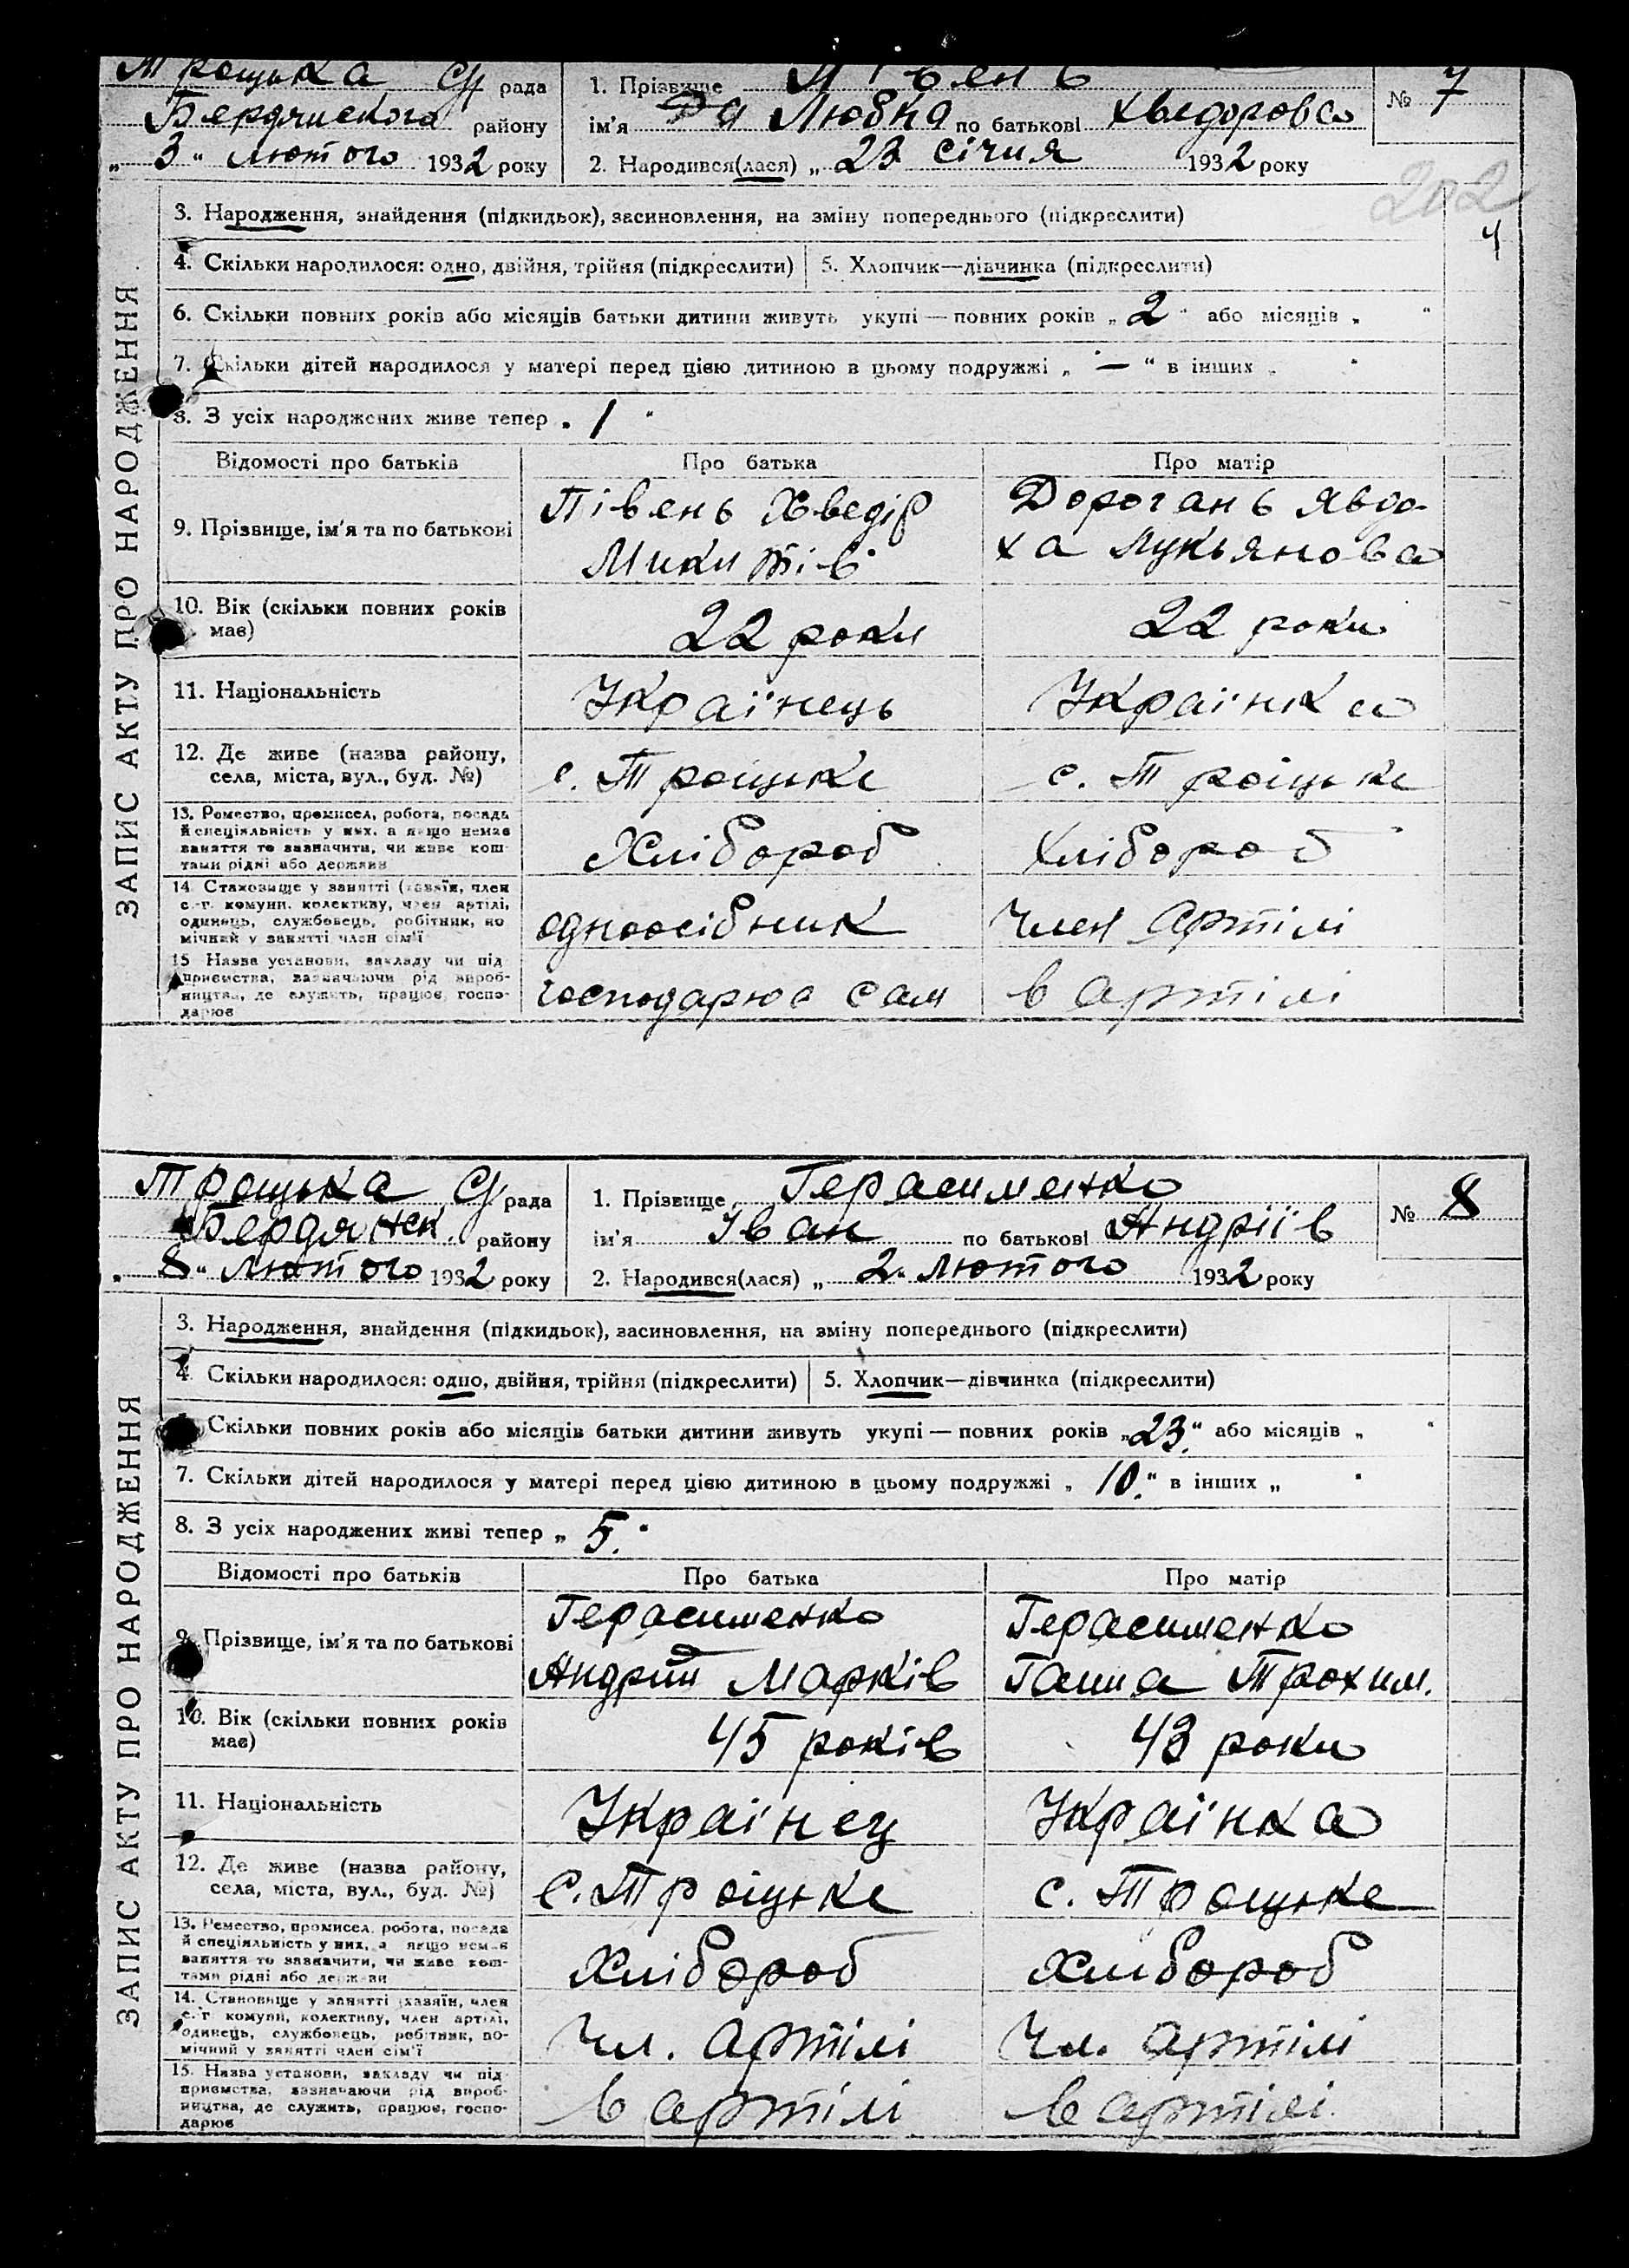 Троцька С/ рада
1. Прізвище Півень
№ 7
Бердянського району
ім'я Любка по батькові Хведорова
„ 3 " Лютого 1932 року
2. Народився(лася) „ 23 січня 1932 року
202
3. Народження, знайдення (підкидьок), засиновлення, на зміну попереднього (підкреслити)
4. Скільки народилося: одно, двійня, трійня (підкреслити)
5. Хлопчик—дівчинка (підкреслити)
6. Скільки повних років або місяців батьки дитини живуть укупі — повних років „ 2 " або місяців „ "
7. Скільки дітей народилося у матері перед цією дитиною в цьому подружжі „ — " в інших „ "
8. З усіх народжених живе тепер „ 1 "
ЗАПИС АКТУ ПРО НАРОДЖЕННЯ
Відомості про батьків
Про батька
Про матір
9. Прізвище, ім'я та по батькові
Півень Хведір
Микитів
Дорогань Явдо-
ха Лукьянова
10. Вік (скільки повних років
має)
22 роки
22 роки
11. Національність
Українець
Українка
12. Де живе (назва району,
села, міста, вул., буд. №)
с. Троіцьке
с. Троіцьке
13. Ремество, промисел, робота, посада
й спеціяльність у них, а якщо немає
заняття то зазначити, чи живе кош-
тами рідні або держави
Хлібороб
Хлібороб
14. Становище у занятті (хазяїн, член
с.-г. комуни, колективу, член артілі,
одинець, службовець, робітник, по-
мічний у занятті член сім'ї
одноосібник
Член Артілі
15. Назва установи, закладу чи під-
приємства, зазначаючи рід вироб-
ництва, де служить, працює, госпо-
дарює
господарює сам
в артілі
Троцька С/ рада
1. Прізвище Герасименко
№ 8
Бердянськ. району
ім'я Іван по батькові Андріїв
„ 8 " Лютого 1932 року
2. Народився(лася) „ 2 " Лютого 1932 року
3. Народження, знайдення (підкидьок), засиновлення, на зміну попереднього (підкреслити)
4. Скільки народилося: одно, двійня, трійня (підкреслити)
5. Хлопчик—дівчинка (підкреслити)
Скільки повних років або місяців батьки дитини живуть укупі — повних років „ 23. " або місяців „ "
7. Скільки дітей народилося у матері перед цією дитиною в цьому подружжі „ 10. " в інших „ "
8. З усіх народжених живі тепер „ 5. "
ЗАПИС АКТУ ПРО НАРОДЖЕННЯ
Відомості про батьків
Про батька
Про матір
9. Прізвище, ім'я та по батькові
Герасименко
Андрий Марків
Герасименко
Ганна Трохим.
10. Вік (скільки повних років
має)
45 років
43 роки
11. Національність
Украінец
Украінка
12. Де живе (назва району,
села, міста, вул., буд. №)
С. Троіцьке
с. Троцьке
13. Ремество, промисел, робота, посада
й спеціяльність у них, а якщо немає
заняття то зазначити, чи живе кош-
тами рідні або держави
Хлібороб
Хлібороб
14. Становище у занятті (хазяїн, член
с.-г. комуни, колективу, член артілі,
одинець, службовець, робітник, по-
мічний у занятті член сім'ї
Чл. артілі
Чл. артілі
15. Назва установи, закладу чи під-
приємства, зазначаючи рід вироб-
ництва, де служить, працює, госпо-
дарює
в артілі
в артілі.